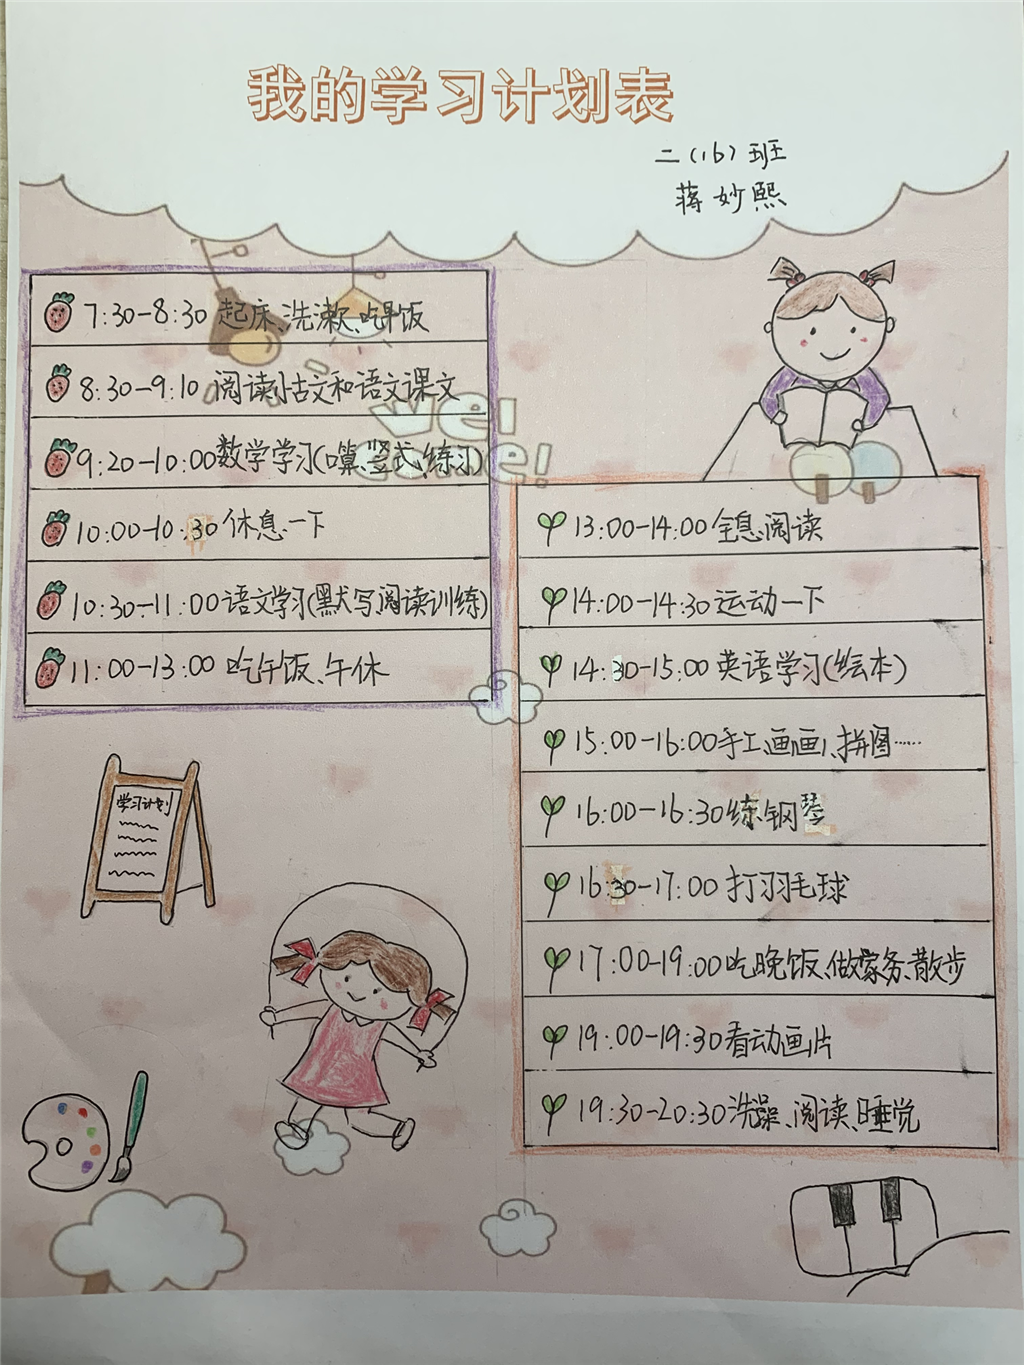 我的学习计划表
二(16)班
蒋妙熙
7:30-8:30 起床、洗漱、吃早饭
8:30-9:10 阅读小古文和语文课文
9:20-10:00数学学习(口算、竖式、练习)
10:00-10:30休息一下
10:30-11:00语文学习(默写、阅读训练)
11:00-13:00 吃午饭、午休
13:00-14:00全息阅读
14:00-14:30运动一下
14:30-15:00 英语学习(绘本)
15:00-16:00手工、画画、拼图……
16:00-16:30练钢琴
16:30-17:00 打羽毛球
17:00-19:00吃晚饭、做家务、散步
19:00-19:30看动画片
19:30-20:30洗澡、阅读、睡觉
学习计划